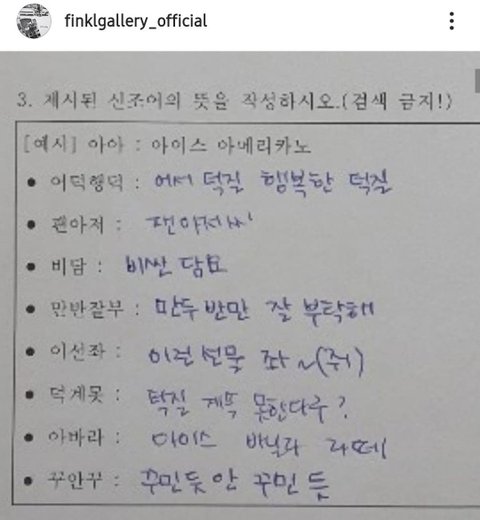 finklgallery_official
3. 제시된 신조어의 뜻을 작성하시오.(검색 금지!)
[예시] 아아 : 아이스 아메리카노
• 어덕행덕 : 어서 덕질 행복한 덕질
• 팬아저 : 팬아저씨
• 비담 : 비싼 담요
• 만반잘부 : 만두 반만 잘 부탁해
• 이선좌 : 이런 선물 좌~(줘)
• 덕계못 : 덕질 계속 못한다구?
• 아바라 : 아이스 바닐라 라떼
• 꾸안꾸 : 꾸민듯 안 꾸민 듯